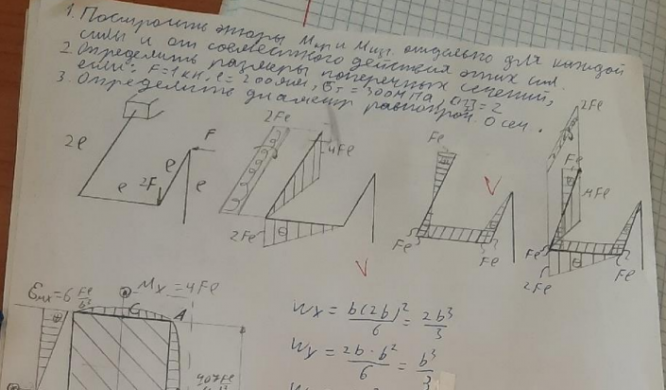 1. Построить эпюры Мкр и Мизг. отдельно для каждой
силы и от совместного действия этих сил.
2. Определить размеры поперечных сечений,
если: F=1кн, l=200мм, σт=300мПа, [n]=2
3. Определить диаметр равнопроч. О сеч.
2Fl
2Fl
4Fl
Fl
Fl
4Fl
2l
F
l
l
2F
l
2Fl
Fl
Fl
Fl
Fl
2Fl
Mx=4Fl
Wx = b(2b)²/6 = 2b³/3
Wy = 2b·b²/6 = b³/3
C
A